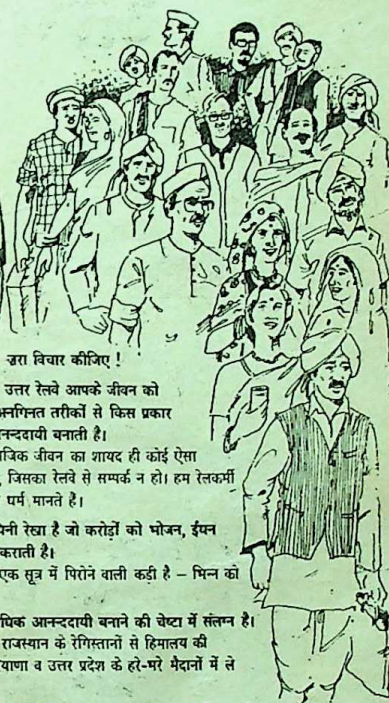 जरा विचार कीजिए !
उत्तर रेलवे आपके जीवन को
अनगिनत तरीकों से किस प्रकार
आनन्ददायी बनाती है।
जिक जीवन का शायद ही कोई ऐसा
जिसका रेलवे से सम्पर्क न हो। हम रेलकर्मी
धर्म मानते हैं।
रेखा है जो करोड़ों को भोजन, ईंधन
कराती है।
एक सूत्र में पिरोने वाली कड़ी है – भिन्न को
धिक आनन्ददायी बनाने की चेष्टा में संलग्न है।
राजस्थान के रेगिस्तानों से हिमालय की
याणा व उत्तर प्रदेश के हरे-भरे मैदानों में ले